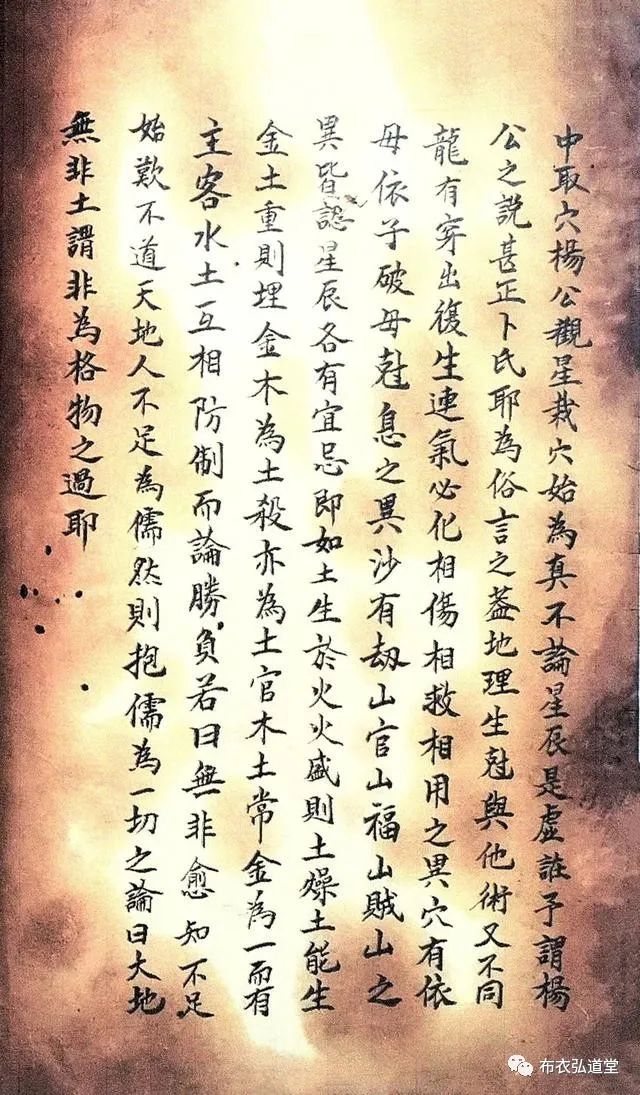 中取穴楊公觀星栽穴始為真不論星辰是虛誑予謂楊
公之説甚正卜氏耶為俗言之葢地理生尅與他術又不同
龍有穿出復生連氣必化相傷相救相用之異穴有依
母依子破母尅息之異沙有劫山官山福山賊山之
異皆認星辰各有宜忌即如土生於火火盛則土燥土能生
金土重則埋金木為土殺亦為土官木土常金為一而有
主客水土互相防制而論勝負若曰無非愈知不足
始歎不道天地人不足為儒然則抱儒為一切之論曰大地
無非土謂非為格物之過耶
布衣弘道堂